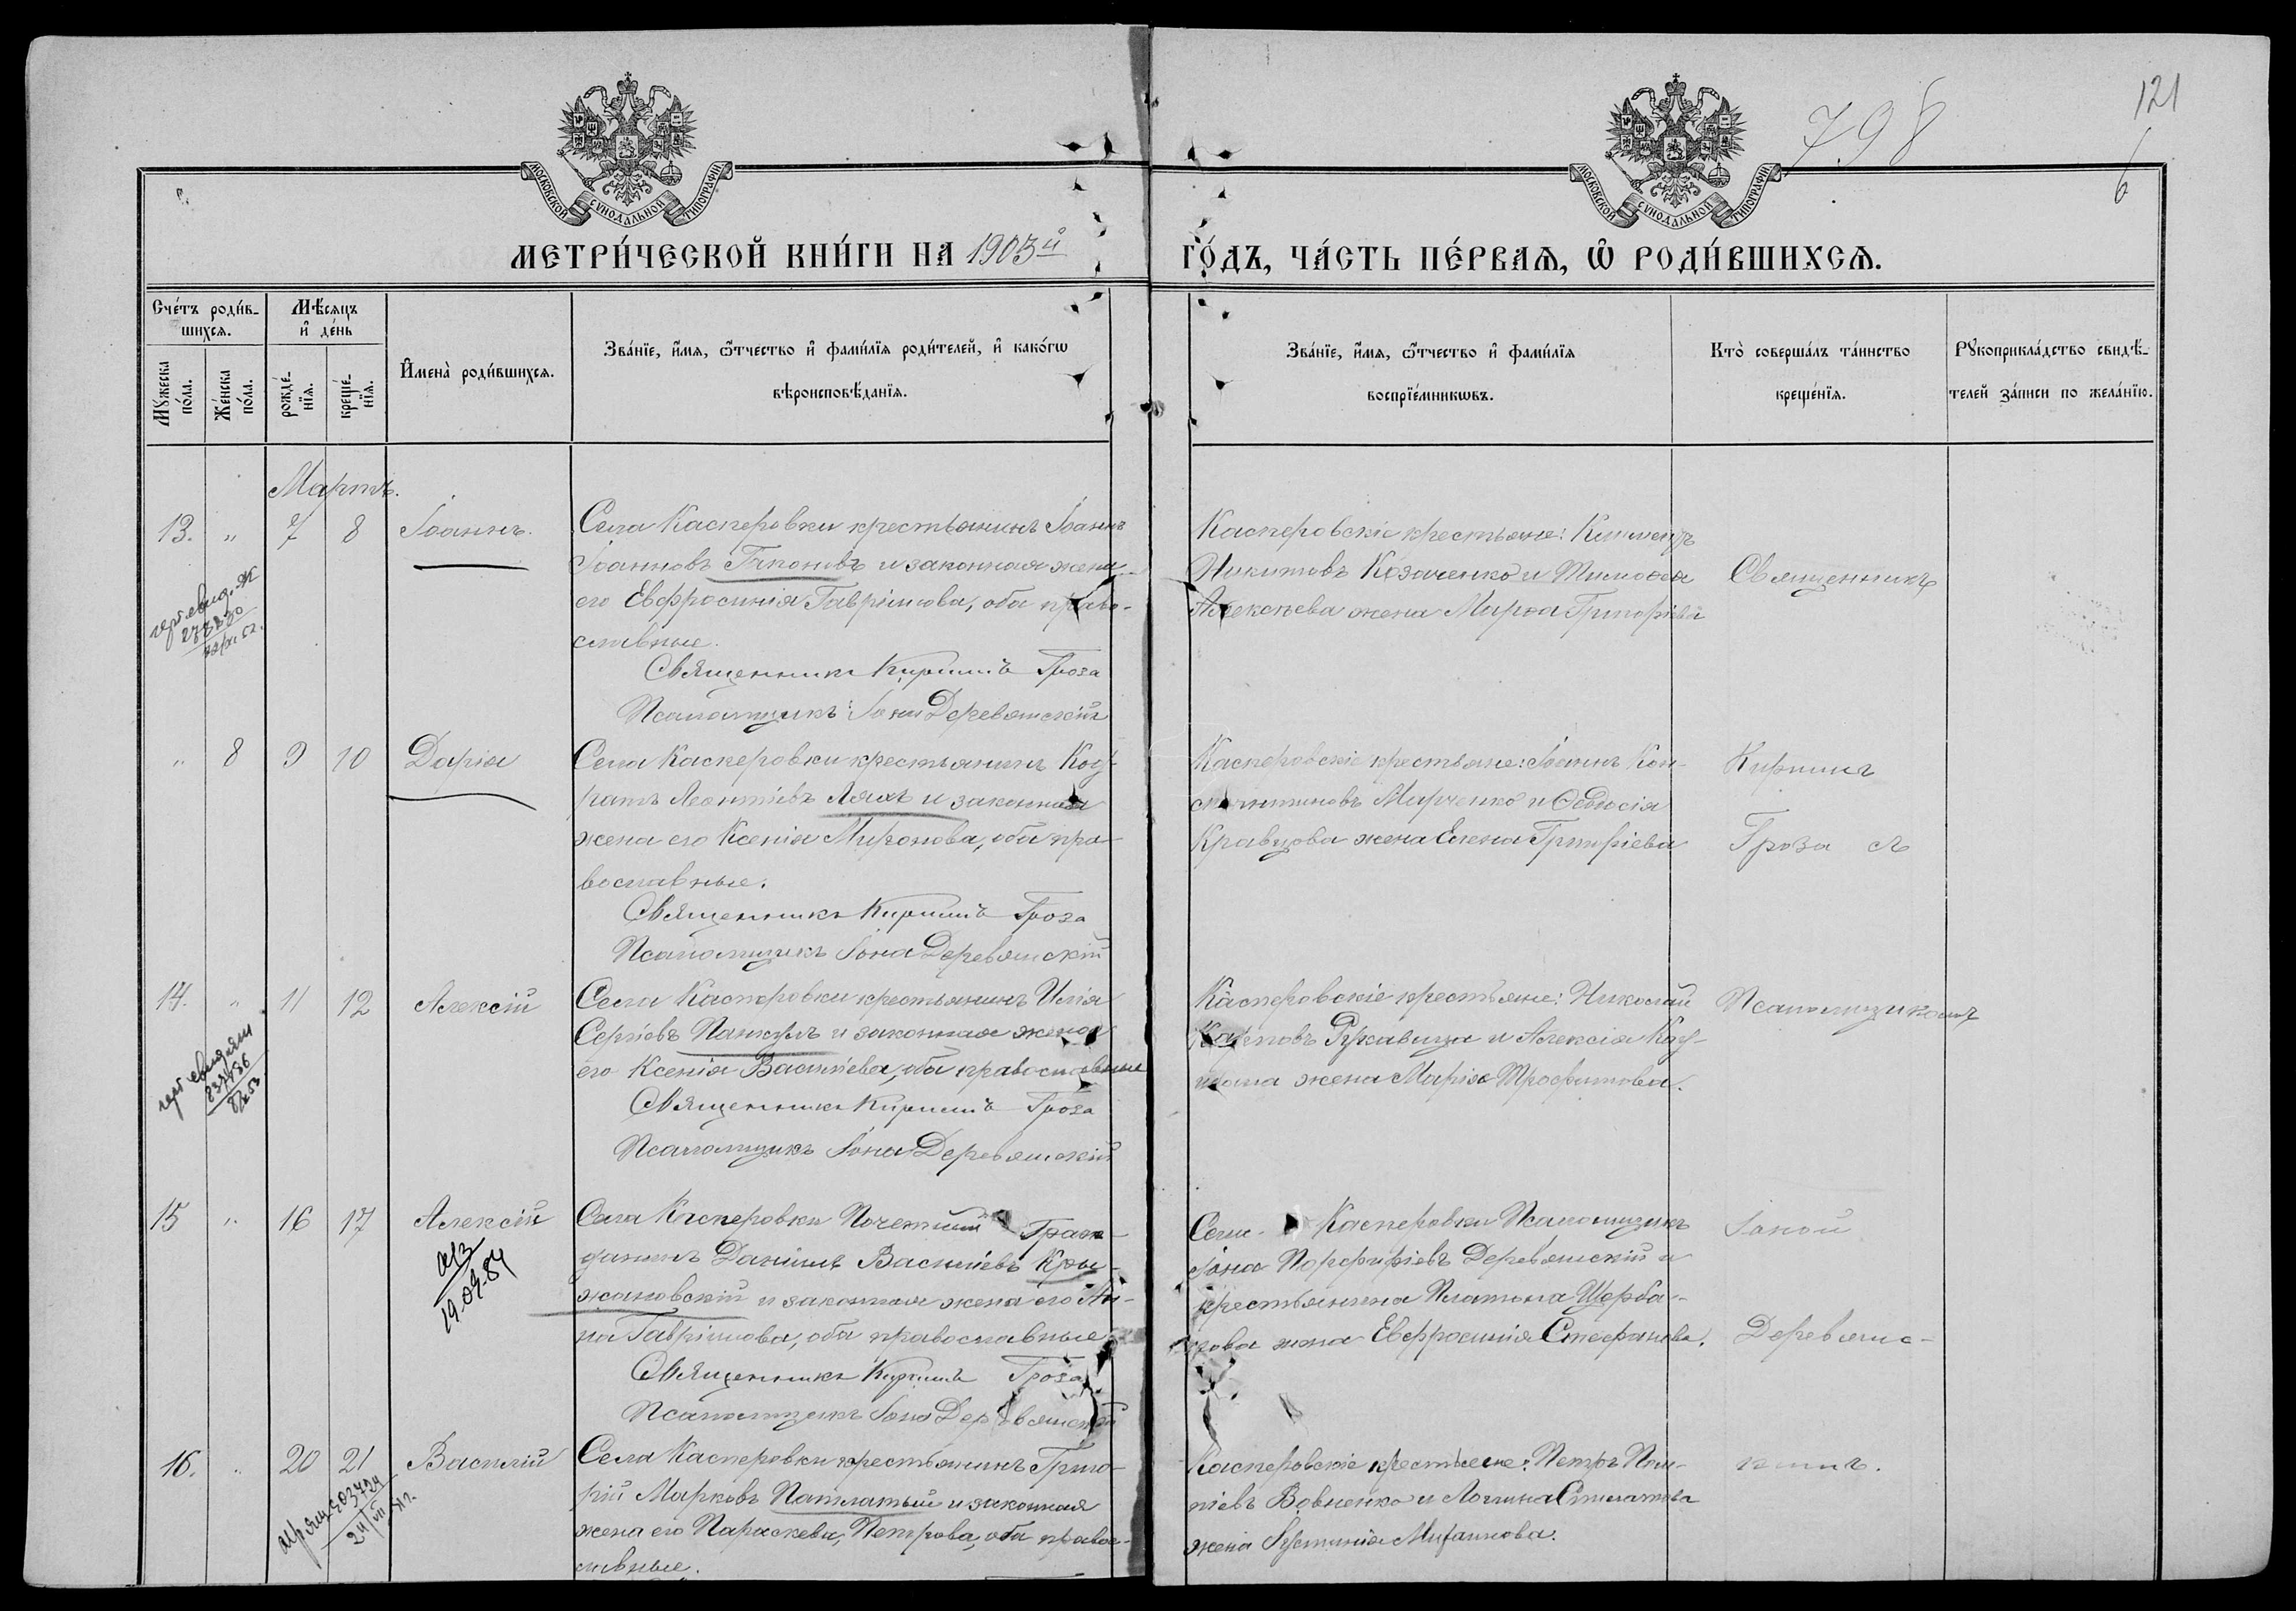 798
121
6
МОСКОВСКОЙ СѴНОДАЛЬНОЙ ТИПОГРАФІИ
МОСКОВСКОЙ СѴНОДАЛЬНОЙ ТИПОГРАФІИ
МЕТРИ́ЧЕСКОЙ КНИ́ГИ НА 1903й
ГО́ДЪ, ЧА́СТЬ ПЕ́РВАѦ, Ѡ РОДИ́ВШИХСѦ.
Сче́тъ роди́в-
шихсѧ.
Мꙋ́жеска по́ла.
Же́нска по́ла.
Мѣ́сѧцъ
и҆ де́нь
рожде́-
нїѧ.
креще́-
нїѧ.
И҆мена̀ роди́вшихсѧ.
Зва́нїе, и҆́мѧ, ѻ҆́тчество и҆ фами́лїѧ роди́телей, и҆ како́гѡ
вѣроисповѣ́данїѧ.
Зва́нїе, и҆́мѧ, ѻ҆́тчество и҆ фами́лїѧ
воспрїе́мникѡвъ.
Кто̀ соверша́лъ та́инство
креще́нїѧ.
Рꙋкоприкла́дство свидѣ́-
телей за́писи по жела́нїю.
Мартъ.
13. „ 7 8 Іоаннъ.
Села Касперовки крестьянинъ Іоаннъ
Іоанновъ и законная жена
его Евфросинія Гавріилова, оба право-
славные.
Священникъ Кириллъ Гроза
Псаломщикъ: Іона Деревянскій
Касперовскіе крестьяне: Климентъ
Никитовъ Козаченко и Тимофея
Алексѣева жена Марѳа Григоріева
Священникъ
„ 8 9 10 Дарія
Села Касперовки крестьянинъ Код-
ратъ Леонтіевъ Ляхъ и законная
жена его Ксенія Миронова, оба пра-
вославные.
Священникъ Кириллъ Гроза
Псаломщикъ Іона Деревянскій
Касперовскіе крестьяне: Іоаннъ Кон-
стантиновъ Марченко и Ѳеодосія
Кравцова жена Елена Григоріева
Кириллъ
Гроза съ
14. „ 11 12 Алексій
Села Касперовки крестьянинъ Илія
Сергіевъ Панкулъ и законная жена
его Ксенія Василіева, оба православные
Священникъ Кириллъ Гроза
Псаломщикъ Іона Деревянскій
Касперовскіе крестьяне: Николай
Карповъ Рукавица и Алексія
жена Марія Трофимова.
Псаломщикомъ
15 „ 16 17 Алексій
19.09.84
Села Касперовки Почетный Граж-
данинъ Даніилъ Василіевъ Кры-
жановскій и законная жена его Ан-
на Гавріилова, оба православные
Священникъ Кириллъ Гроза
Псаломщикъ Іона Деревянскій
Села Касперовки Псаломщикъ
Іона Порфиріевъ Деревянскій и
крестьянина Платона Щерба-
кова жена Евфросинія Стефанова.
Іоной
Деревянс-
16. „ 20 21 Василій
Села Касперовки крестьянинъ Григо-
рій Марковъ Патлатый и законная
жена его Параскева Петрова, оба право-
славные.
Касперовскіе крестьяне: Петръ
Вовненко и Логина
жена Іустинія Михаилова.
кимъ.